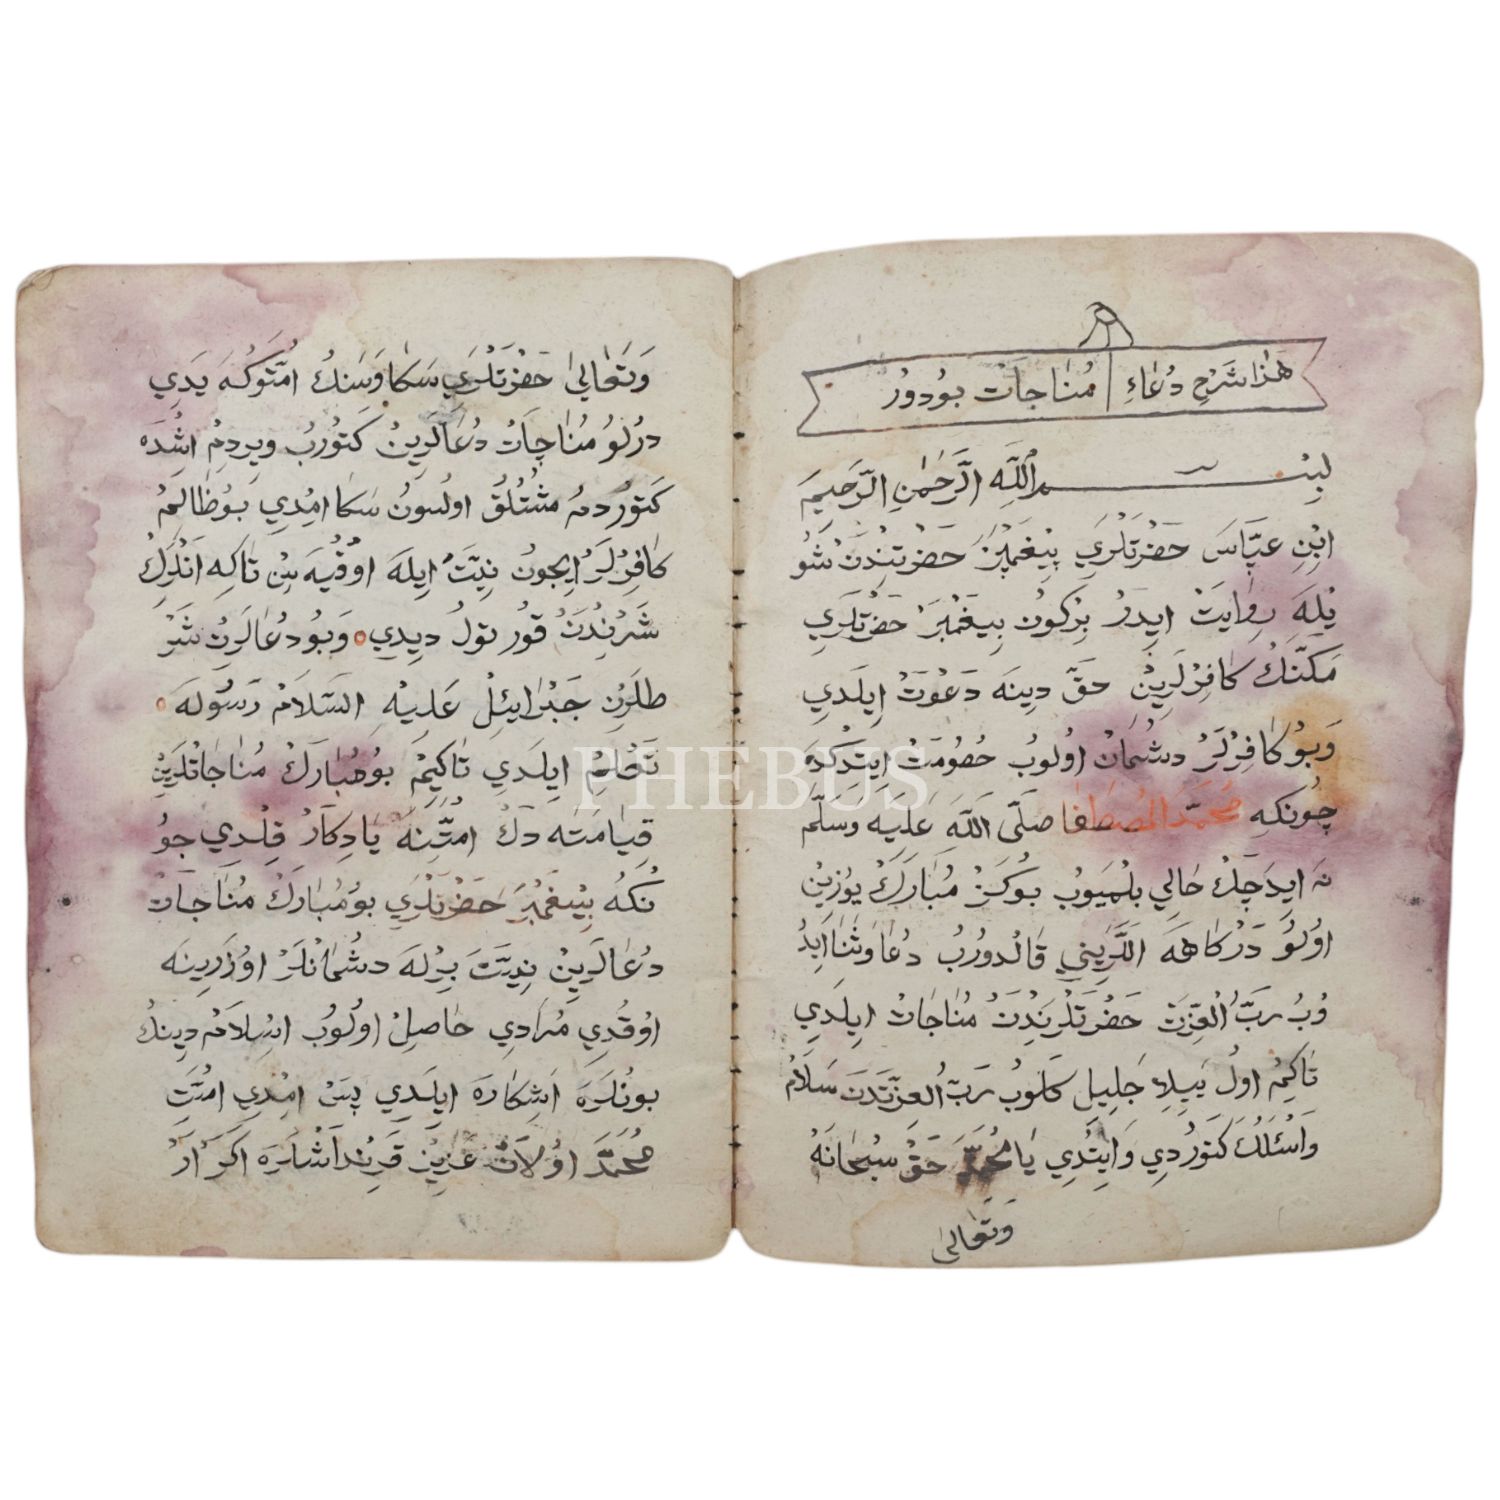 هٰذَا شَرْحِ دُعَاءِ مُنَاجَاتْ بُودُورْ
بِسْمِ اللّٰهِ الرَّحْمٰنِ الرَّحِيمِ
ابْنِ عَبَّاسَ حَضْرَتَلْرِي پَيْغَمْبَرْ حَضْرَتِنْدَنْ شُو
يْلَه رِوَايَتْ ايدَرْ بِرْكُونْ پَيْغَمْبَرْ حَضْرَتَلَرِي
مَكَّنِكْ كَافِرْلَرِينْ حَقّ دِينَه دَعْوَتْ اِيلَدِي
وَبُو كَافِرْلَرْ دُشْمَانْ اوُلُوبْ خُصُومَتْ ايتدُكْدَه
چُونكِه مُحَمَّدُ المُصْطَفَا صَلَّى اللّٰهُ عَلَيْهِ وَسَلَّمَ
نَه ايدَجَكْ حَالِي بِلْمَيُوبْ بُو كَزْ مُبَارَكْ يُوزِينْ
اوُلُو دَرْكَاهَه اَللَّرِينِي قَالْدُورُبْ دُعَا وَثَنَا اَيدُ
وُبْ رَبُّ الْعِزَّتْ حَضْرَتَلْرِنْدَنْ مُنَاجَاتْ اِيلَدِي
تَاكِيمْ اوُلْ جَلِيلْ كَلُوبْ رَبُّ الْعِزَّتَدَنْ سَلَامْ
كَتُورْدِي وَايِتْدِي يَا مُحَمَّدْ حَقْ سُبْحَانَهُ
وَتَعَالَىٰ
وَتَعَالَىٰ حَضْرَتَلَرِي سَكَا وَسَنِكْ امَّتُوكَه يَدِي
دُرْلُو مُنَاجَاتْ دُعَالَرِينْ كَتُورُبْ وِيرْدِمْ اشْدَه
كَتُورْدُمْ مُشْتُلُقْ اوُلْسُونْ سَكَا امْدِي بُو ظَالِمْ
كَافِرْلَرْ اِيچُونْ نِيَّتْ اِيلَه اوُقُيَه سِنْ تَاكِه اَنْلَرِكْ
شَرْنْدَنْ قُورْتُولْ دِيدِي وَبُو دُعَالَرِنْ شَرْ
طْلَرِنْ جَبْرَائِلْ عَلَيْهِ السَّلَامْ رَسُولَه
تَعْلِمْ اِيلَدِي تَاكِيمْ بُو مُبَارَكْ مُنَاجَاتْلَرِينْ
قِيَامَتَه دَكْ امَّتِنَه يَادِكَارْ قِلْدِي چُو
نْكُه پَيْغَمْبَرْ حَضْرَتَلَرِي بُو مُبَارَكْ مُنَاجَاتْ
دُعَالَرِينْ نِيَّتَ بِرْلَه دُشْمَانْلَرْ اوُزَرِينَه
اوُقُدِي مُرَادِي حَاصِلْ اوُلُوبْ اِسْلَامْ دِينِكْ
بُونْلَرَه اَشِكَارَه اِيلَدِي پَسْ امْدِي امَّتِ
مُحَمَّدْ اوُلَانْ عَزِيزْ قَرِنْدَاشْلَرَه اَكَرْ اَرْ